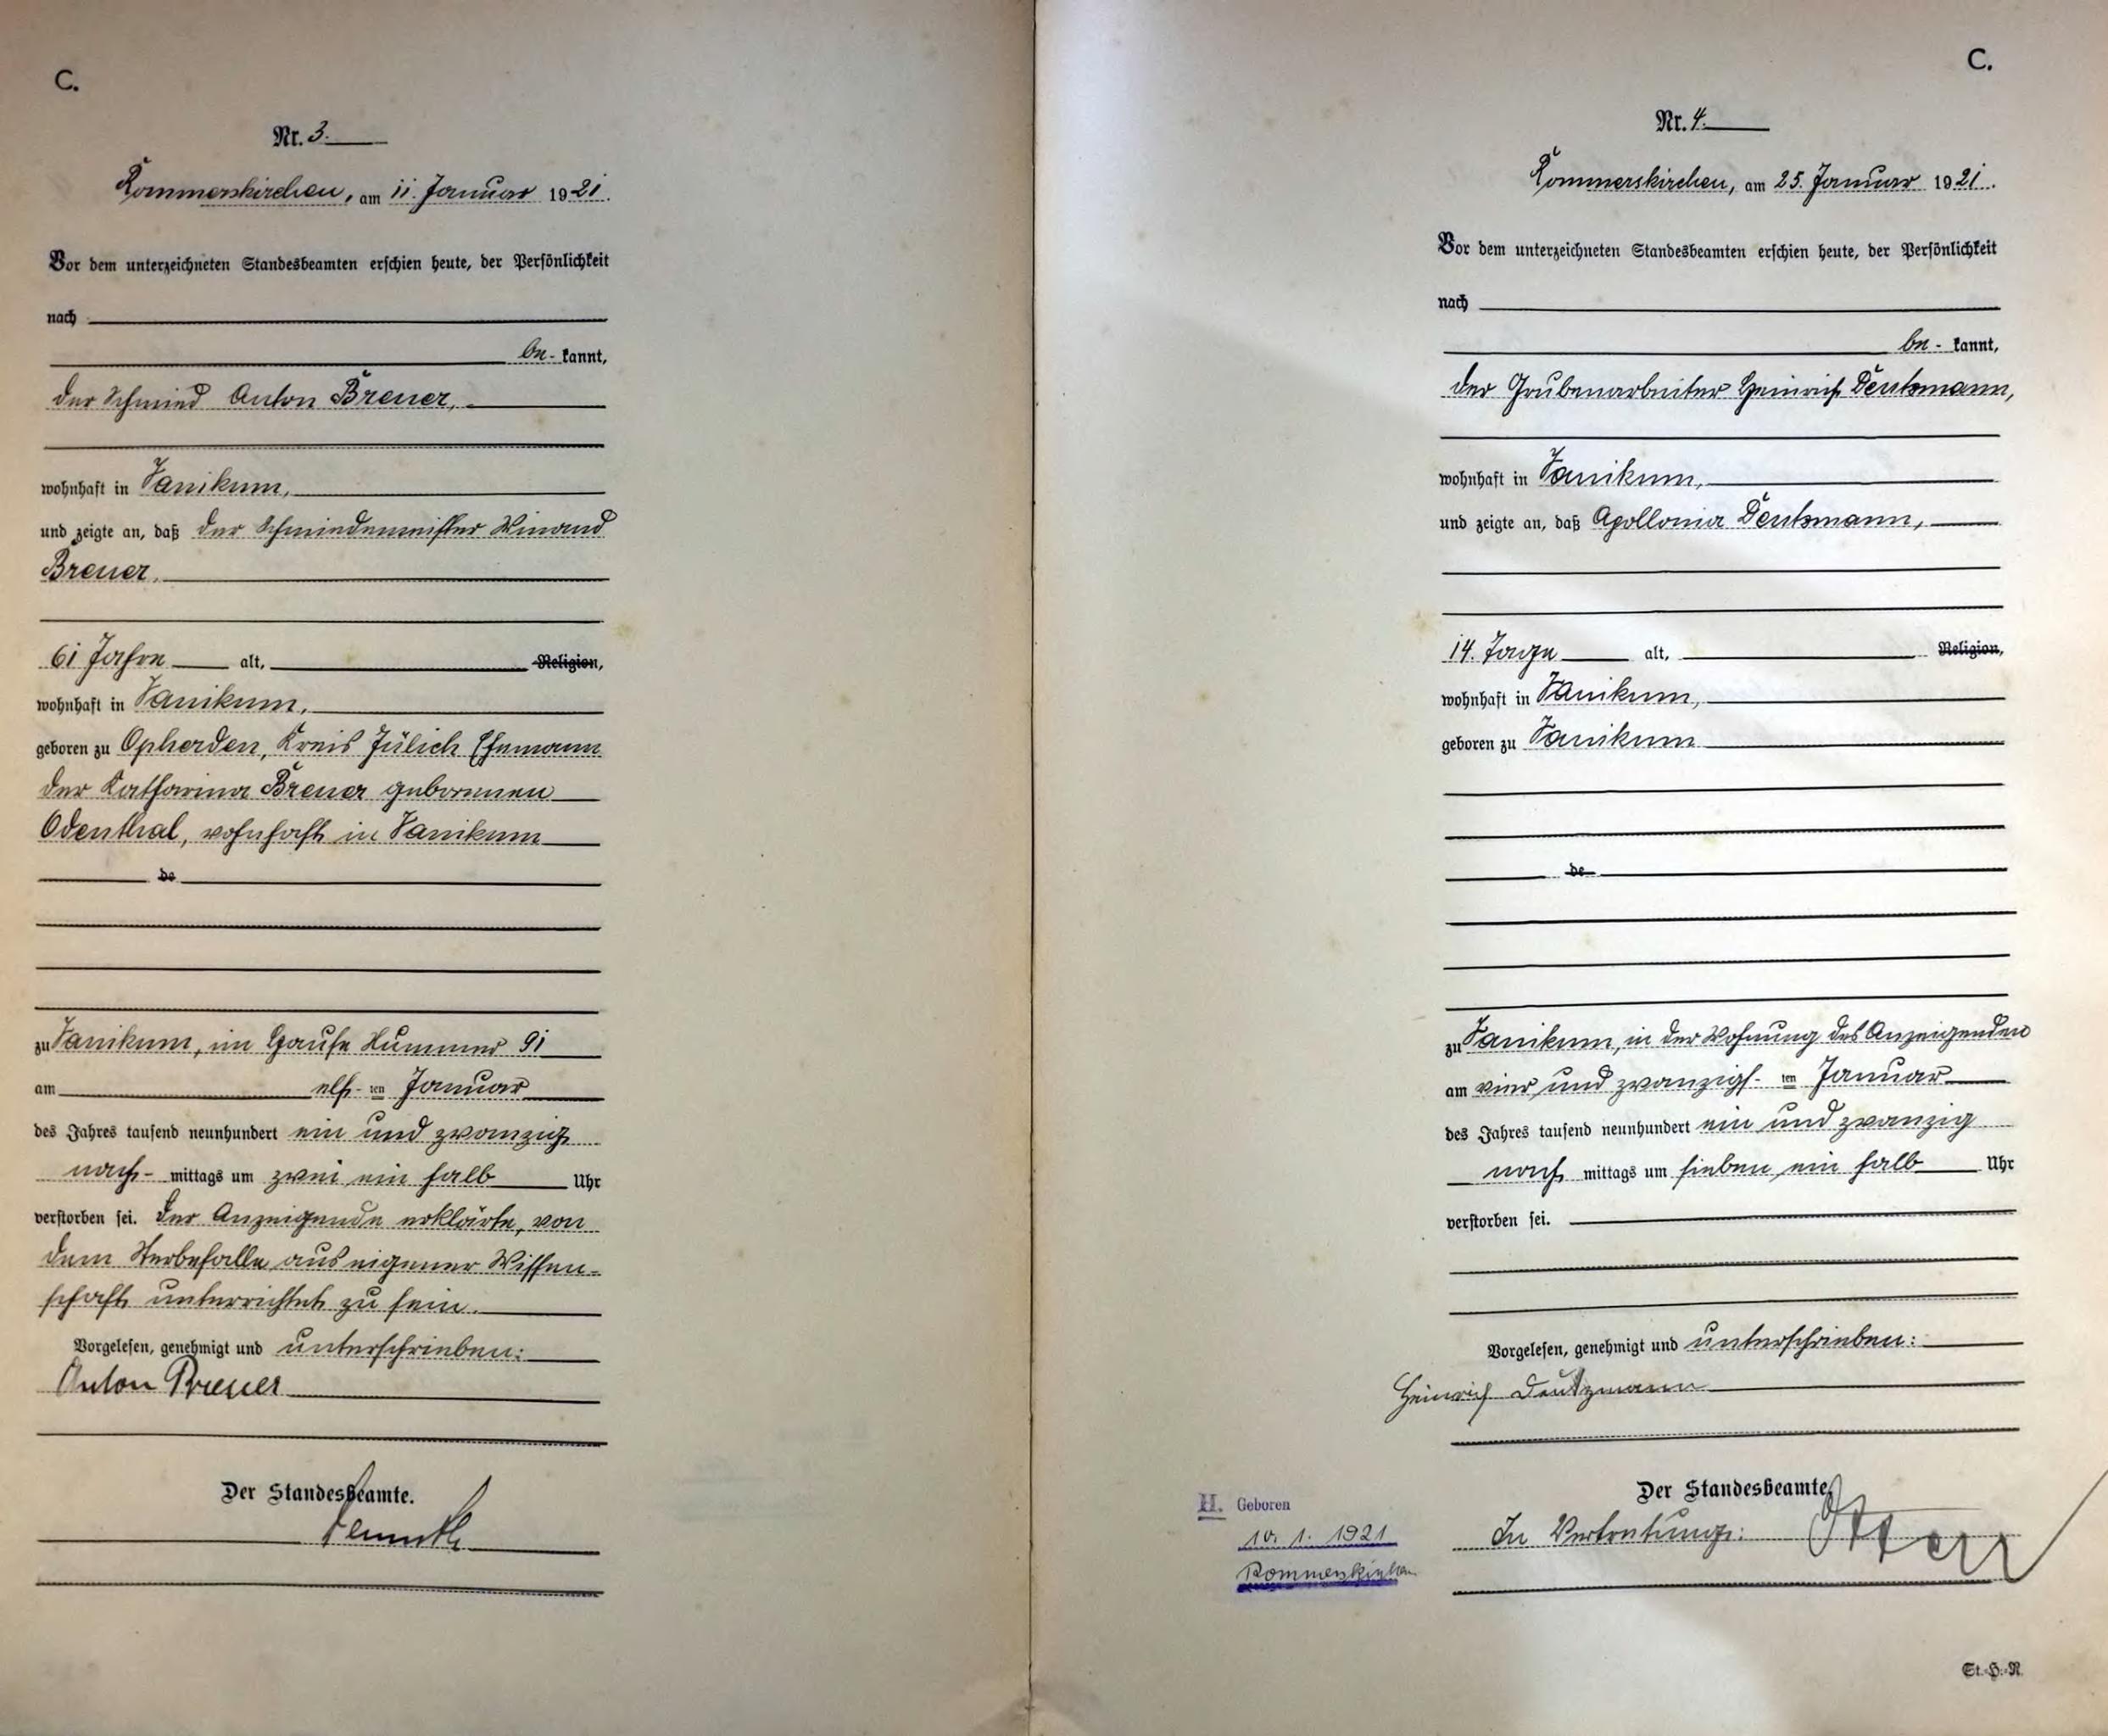 C.
Nr. 3.
Rommerskirchen, am 11. Januar 1921.
Vor dem unterzeichneten Standesbeamten erschien heute, der Persönlichkeit
nach
be- kannt,
der Schmied Anton Breuer,
wohnhaft in Vanikum,
und zeigte an, daß der Schmiedemeister Winand
Breuer,
61 Jahre alt, Religion,
wohnhaft in Vanikum,
geboren zu Opherden, Kreis Jülich Ehemann
der Katharina Breuer geborenen
Odenthal, wohnhaft in Vanikum
de
zu Vanikum, im Hause Nummer 91
am elf- ten Januar
des Jahres tausend neunhundert ein und zwanzig
nach- mittags um zwei ein halb Uhr
verstorben sei. Der Anzeigende erklärte, von
dem Sterbefalle aus eigener Wissen-
schaft unterrichtet zu sein.
Vorgelesen, genehmigt und unterschrieben:
Anton Breuer
Der Standesbeamte.
C.
Nr. 4.
Rommerskirchen, am 25. Januar 1921.
Vor dem unterzeichneten Standesbeamten erschien heute, der Persönlichkeit
nach
be- kannt,
der Grubenarbeiter Heinrich Deutzmann,
wohnhaft in Vanikum,
und zeigte an, daß Apollonia Deutzmann,
14. Tage alt, Religion,
wohnhaft in Vanikum,
geboren zu Vanikum
de
zu Vanikum, in der Wohnung des Anzeigenden
am vier und zwanzigs- ten Januar
des Jahres tausend neunhundert ein und zwanzig
nach mittags um sieben ein halb Uhr
verstorben sei.
Vorgelesen, genehmigt und unterschrieben:
Heinrich Deutzmann
Der Standesbeamte
In Vertretung:
H. Geboren
10. 1. 1921
Rommerskirchen
St.-H.-R.